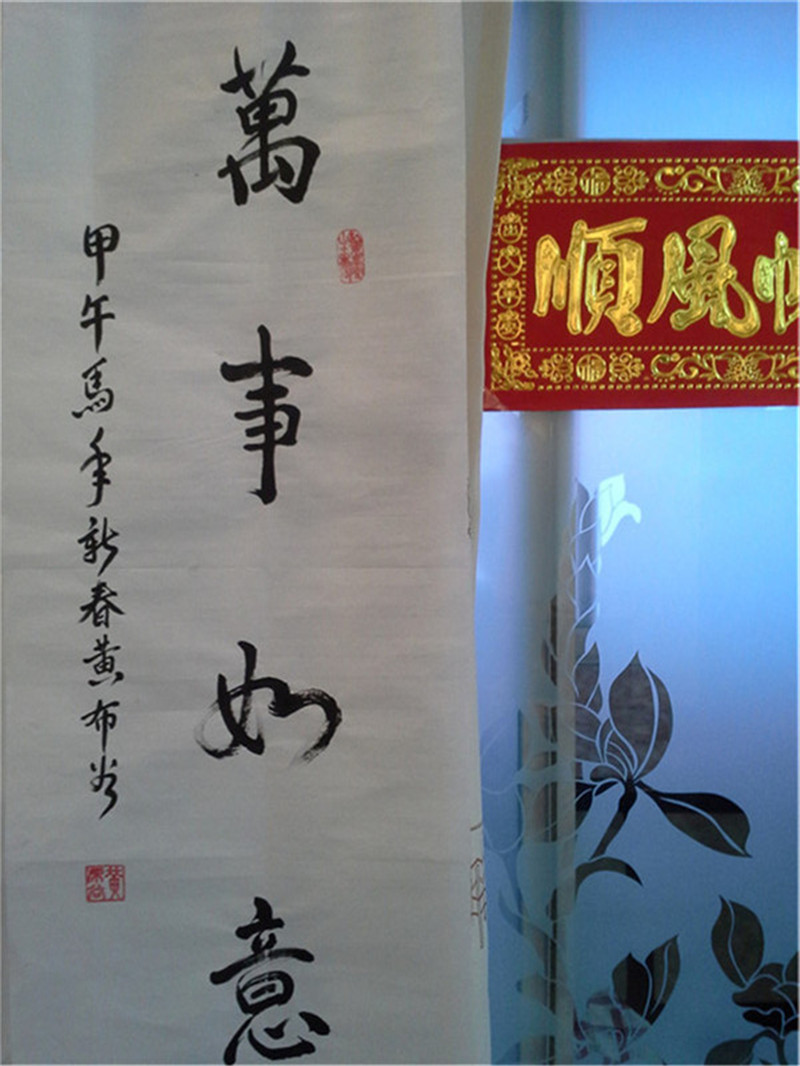 萬事如意
甲午馬年新春黄布谷
順風帆